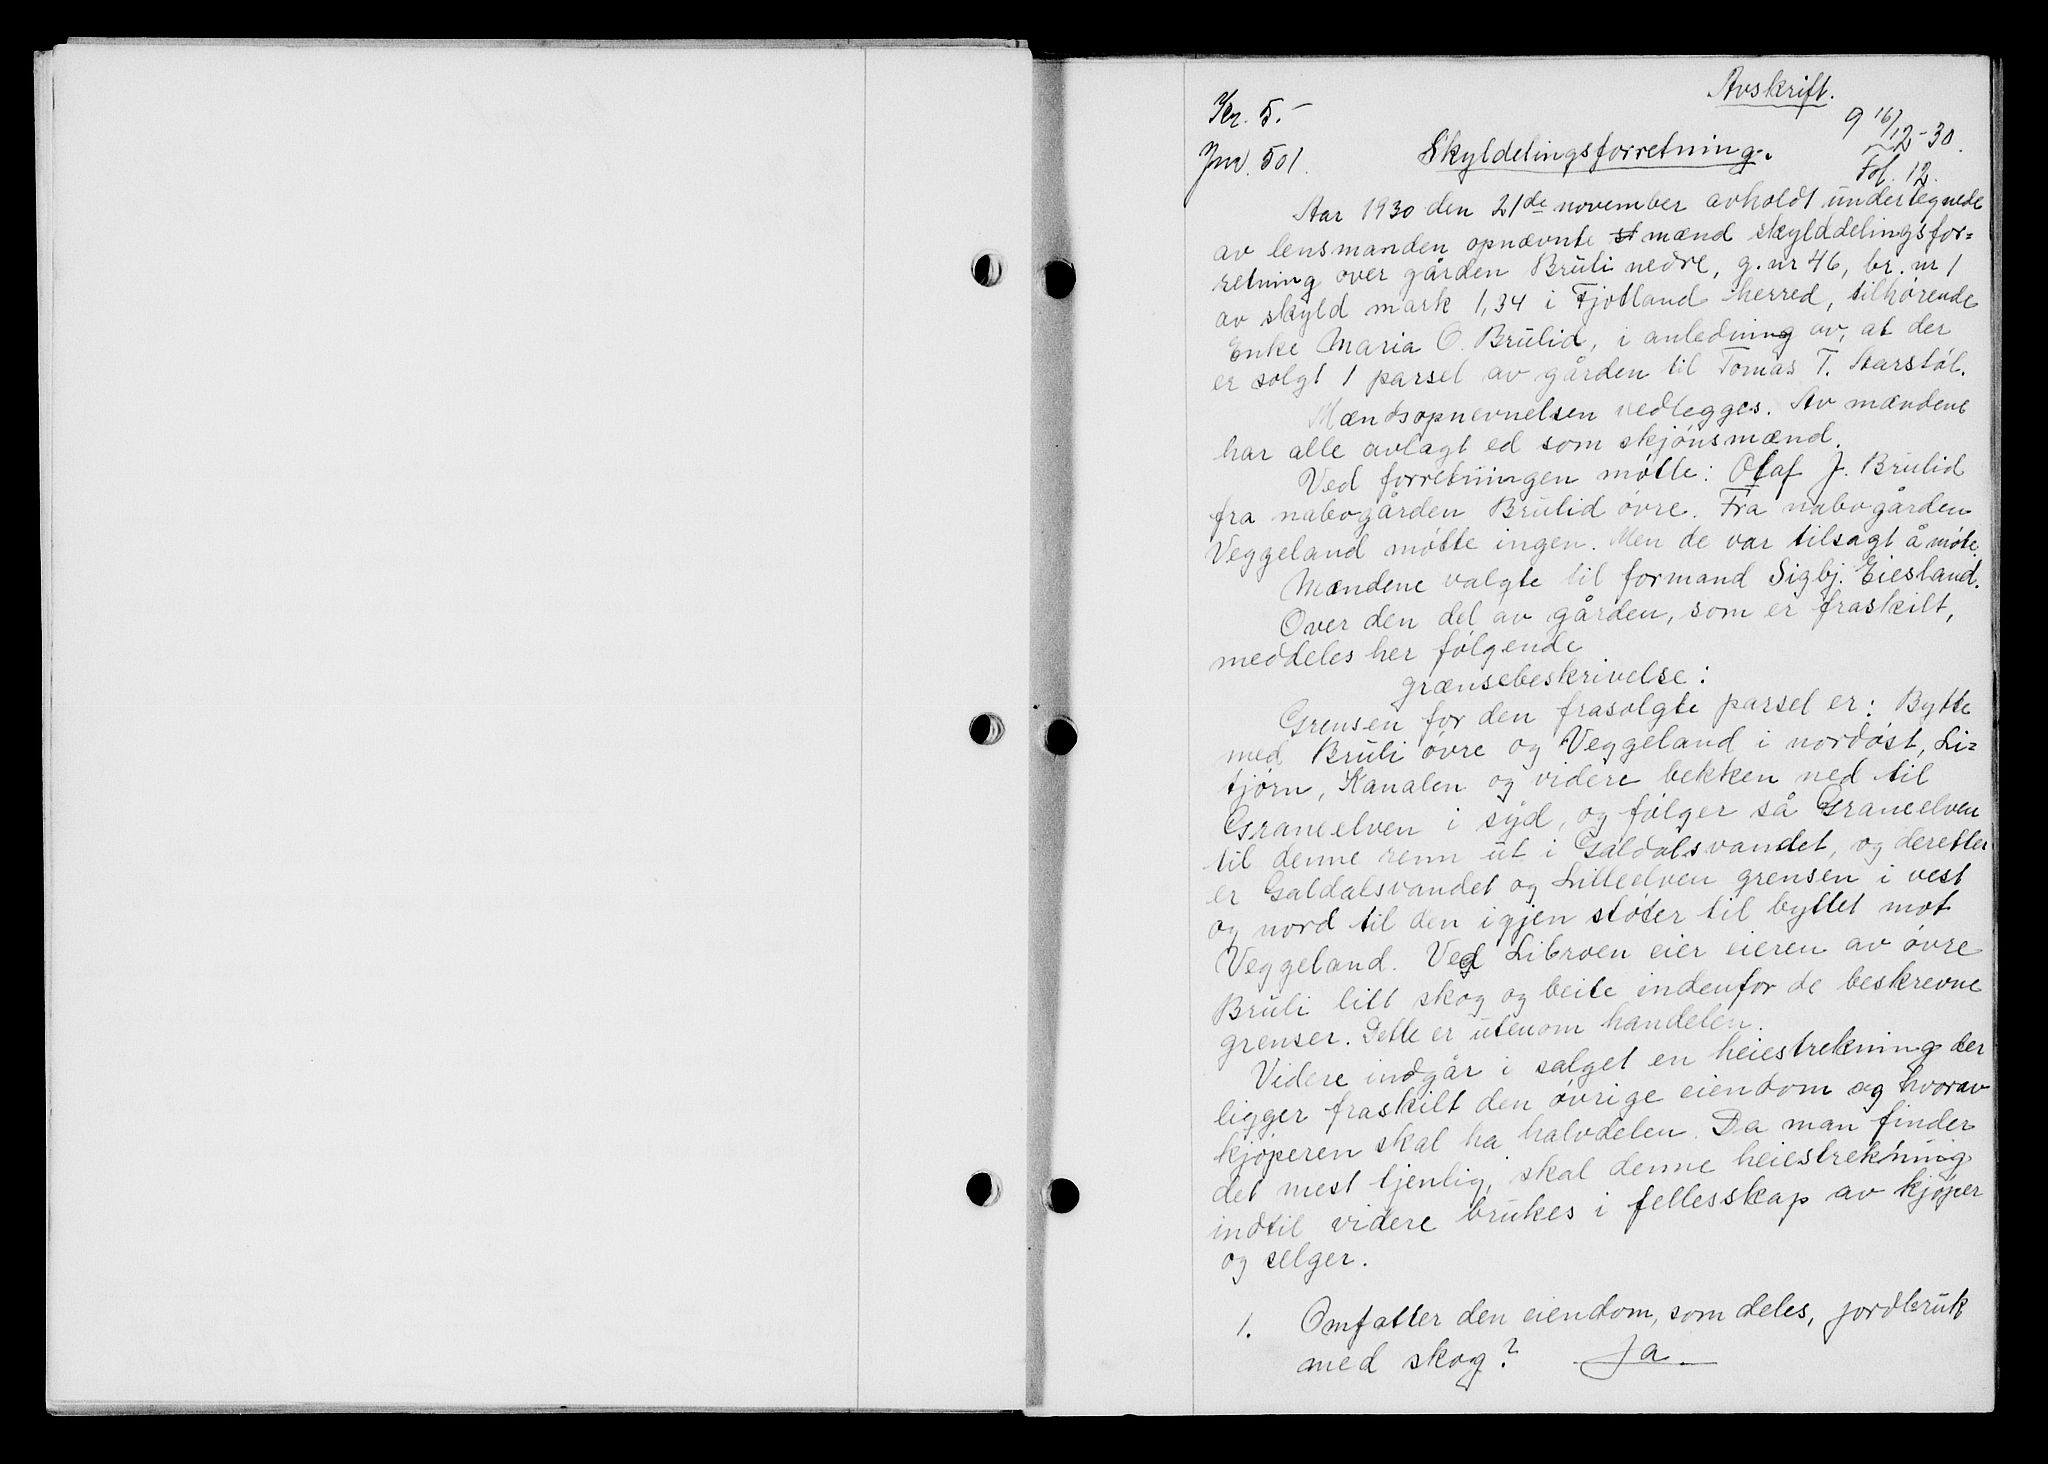 Avskrift.
Kr. 5.-
9 16/12-30.
Jnr. 501.
Skyldelingsforretning.
Fol. 12.
Aar 1930 den 21de november avholdt undertegnede
av lensmanden opnævnte mænd skylddelingsfor=
retning over gården Bruli nedre, g. nr 46, br. nr 1
av skyld mark 1,34 i Fjotland herred, tilhørende
Enke Maria O. Brulid, i anledning av, at der
er solgt 1 parsel av gården til Tomas T. Aarstøl.
Mændsopnevnelsen vedlegges. Av mændene
har alle avlagt ed som skjønsmænd.
Ved forretningen møtte: Olaf J. Brulid
fra nabogården Brulid øvre. Fra nabogården
Veggeland møtte ingen. Men de var tilsagt å møte.
Mændene valgte til formand Sigbj. Eiesland.
Over den del av gården, som er fraskilt,
meddeles her følgende
grænsebeskrivelse:
Grensen for den frasolgte parsel er: Bytte
med Bruli øvre og Veggeland i nordøst, Li=
tjørn, Kanalen og videre bekken ned til
Graneelven i syd, og følger så Graneelven
til denne renn ut i Galdalsvandet, og deretter
er Galdalsvandet og Lilleelven grensen i vest
og nord til den igjen støter til byttet mot
Veggeland. Ved Libroen eier eieren av øvre
Bruli litt skog og beite indenfor de beskrevne
grenser. Dette er utenom handelen.
Videre indgår i salget en heiestrekning der
ligger fraskilt den øvrige eiendom og hvorav
kjøperen skal ha halvdelen. Da man finder
det mest tjenlig, skal denne heiestrekning
indtil videre brukes i fellesskap av kjøper
og selger.
1. Omfatter den eiendom, som deles, jordbruk
med skog? Ja